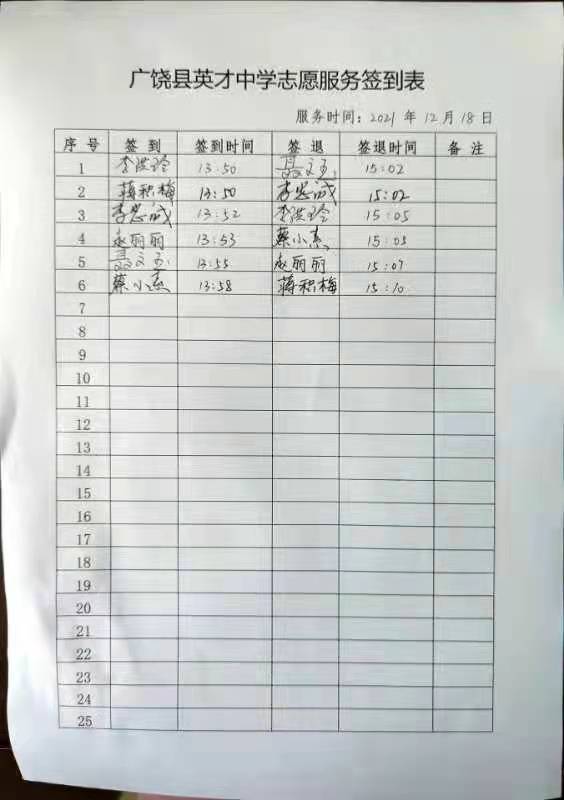 广饶县英才中学志愿服务签到表
服务时间：2021 年 12 月 18 日
序号 签到 签到时间 签退 签退时间 备注
1 李洪玲 13:50 聂文玉 15:02
2 蒋积梅 13:50 李忠诚 15:02
3 李忠诚 13:52 李洪玲 15:05
4 丽丽 13:53 蔡小燕 15:05
5 聂文玉 13:55 丽丽 15:07
6 蔡小燕 13:58 蒋积梅 15:10
7
8
9
10
11
12
13
14
15
16
17
18
19
20
21
22
23
24
25